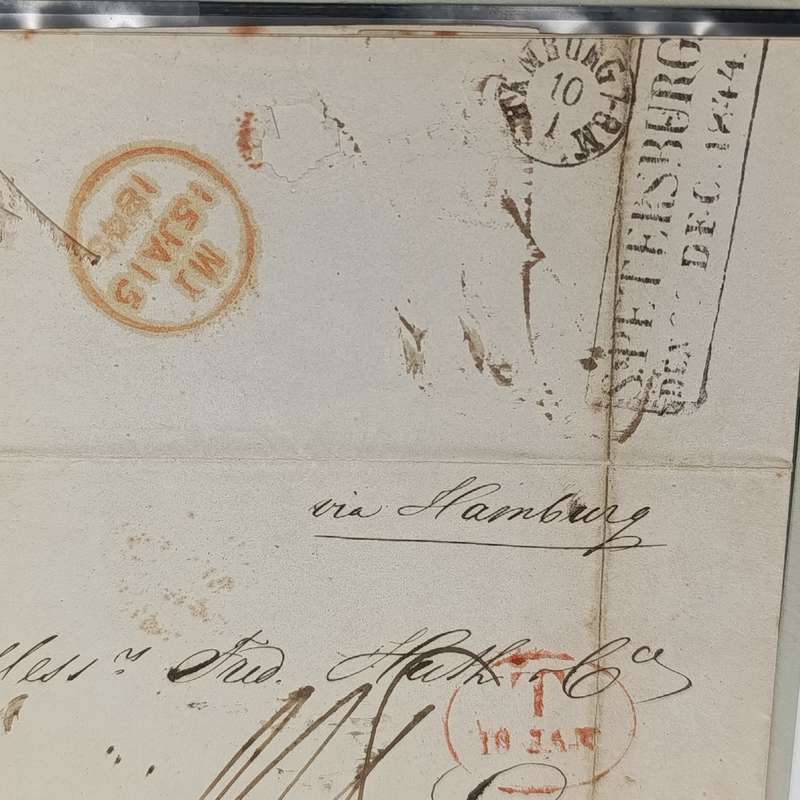 HAMBURG 7-8 N
10
1
S. PETERSBURG
DEC. 1844.
MJ
15 JA 15
1845
via Hamburg
Mess.rs Fred. Huth & Co
T
10 JAN